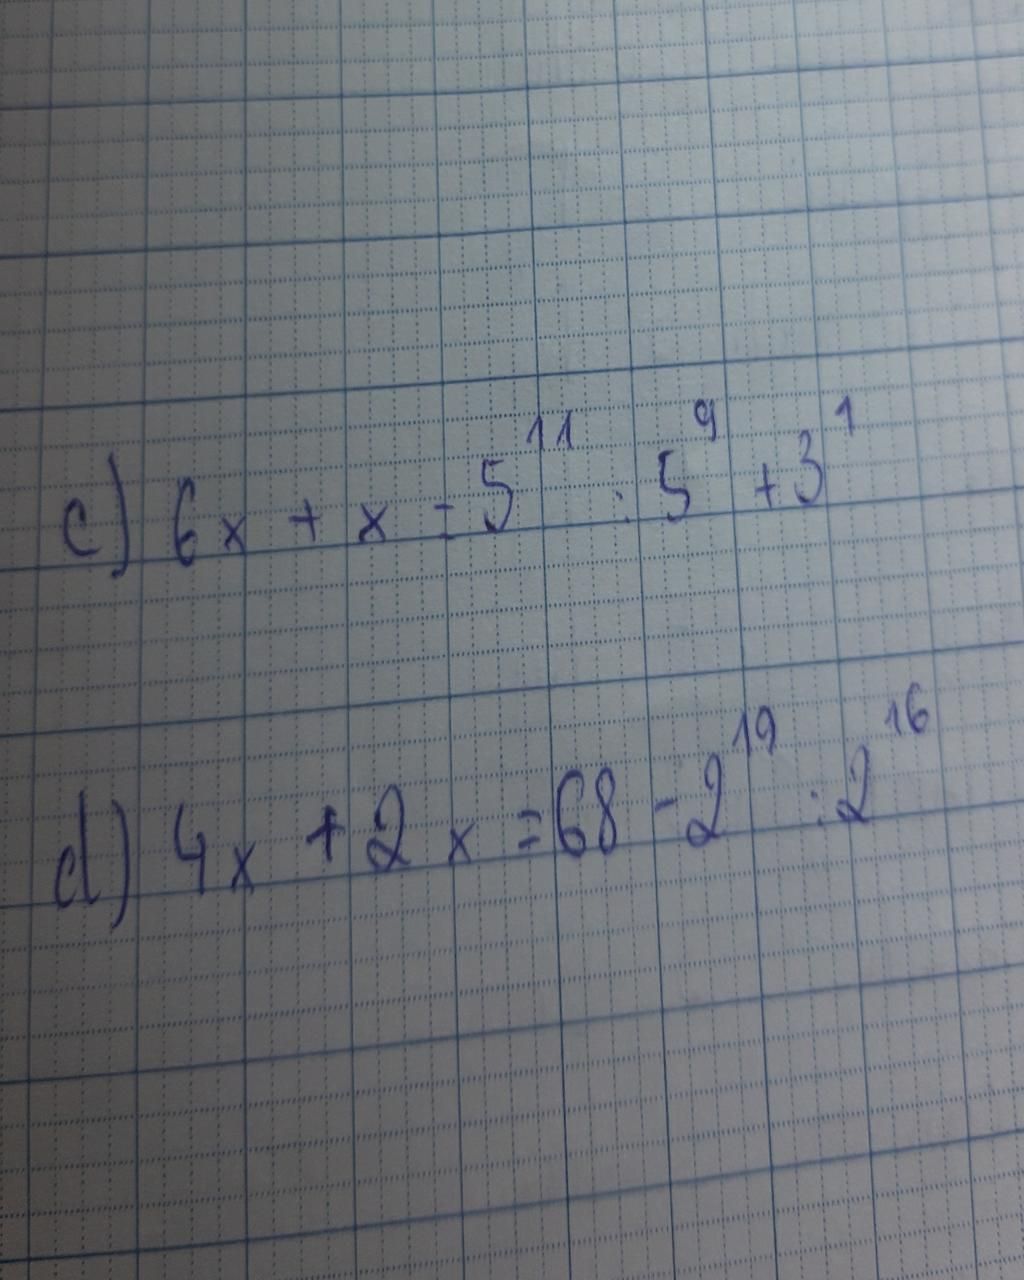 c) 6x + x = 5¹¹ : 5⁹ + 3¹
d) 4x + 2x = 68 - 2¹⁹ : 2¹⁶